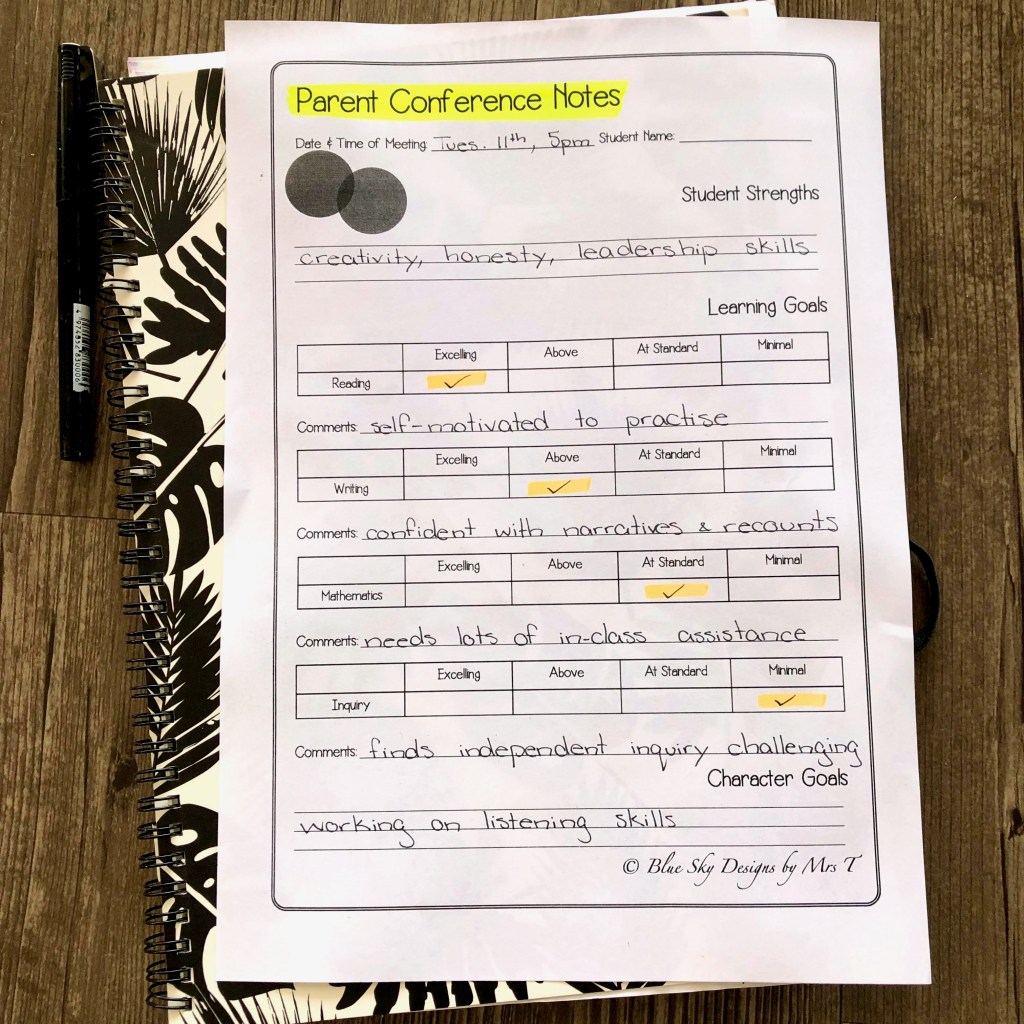 Parent Conference Notes
Date & Time of Meeting: Tues. 11th, 5pm Student Name:
Student Strengths
creativity, honesty, leadership skills
Learning Goals
Excelling Above At Standard Minimal
Reading ✓
Comments: self-motivated to practise
Excelling Above At Standard Minimal
Writing ✓
Comments: confident with narratives & recounts
Excelling Above At Standard Minimal
Mathematics ✓
Comments: needs lots of in-class assistance
Excelling Above At Standard Minimal
Inquiry ✓
Comments: finds independent inquiry challenging
Character Goals
working on listening skills
© Blue Sky Designs by Mrs T
4 974052 830006